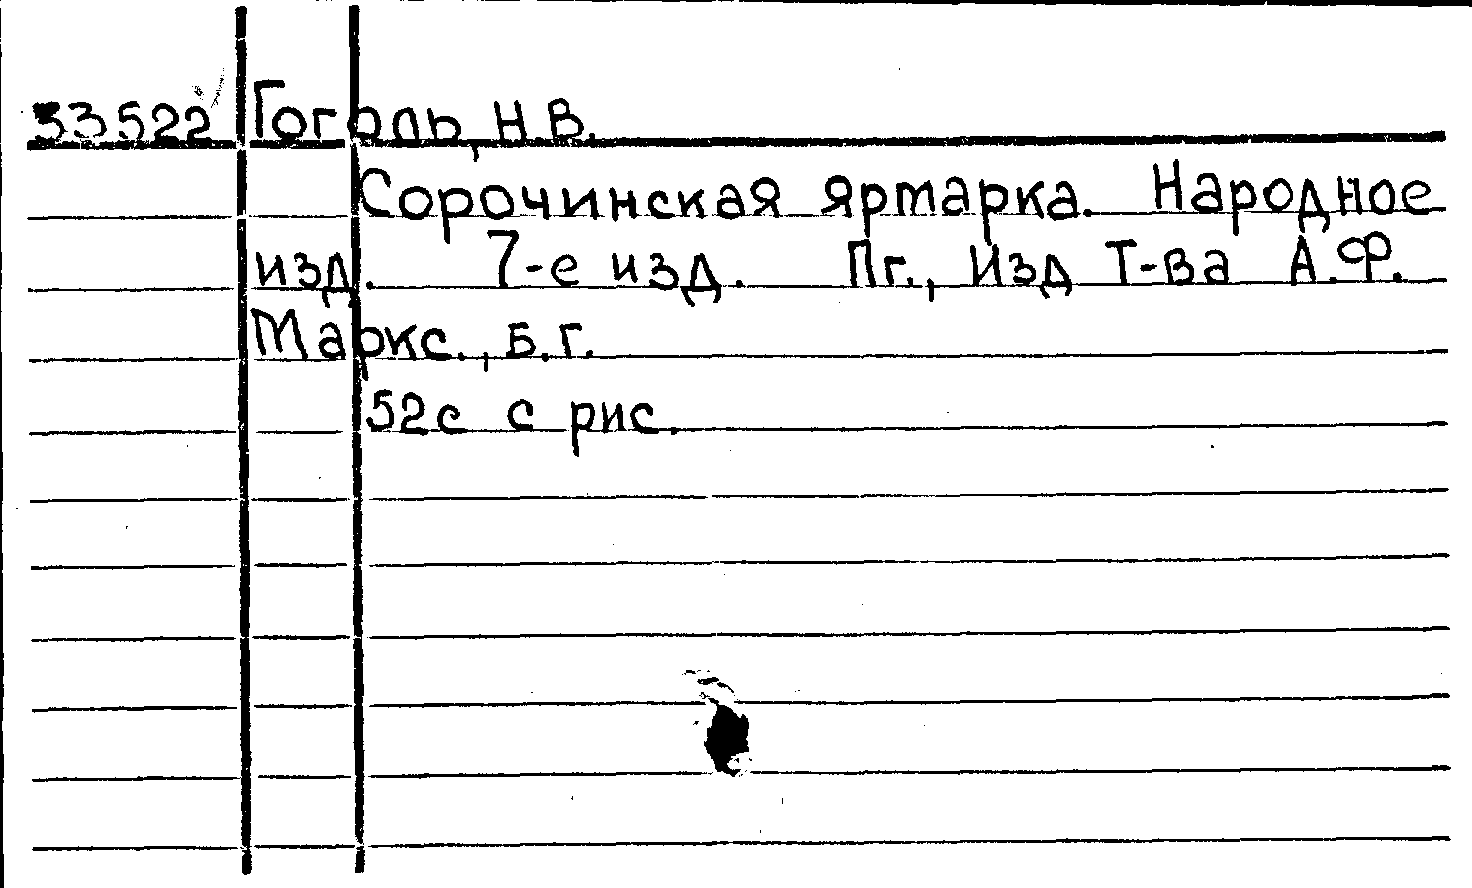 33522 Гоголь, Н.В.
Сорочинская ярмарка. Народное
изд. 7-е изд. Пг., Изд Т-ва А.Ф.
Маркс., б.г.
52с с рис.